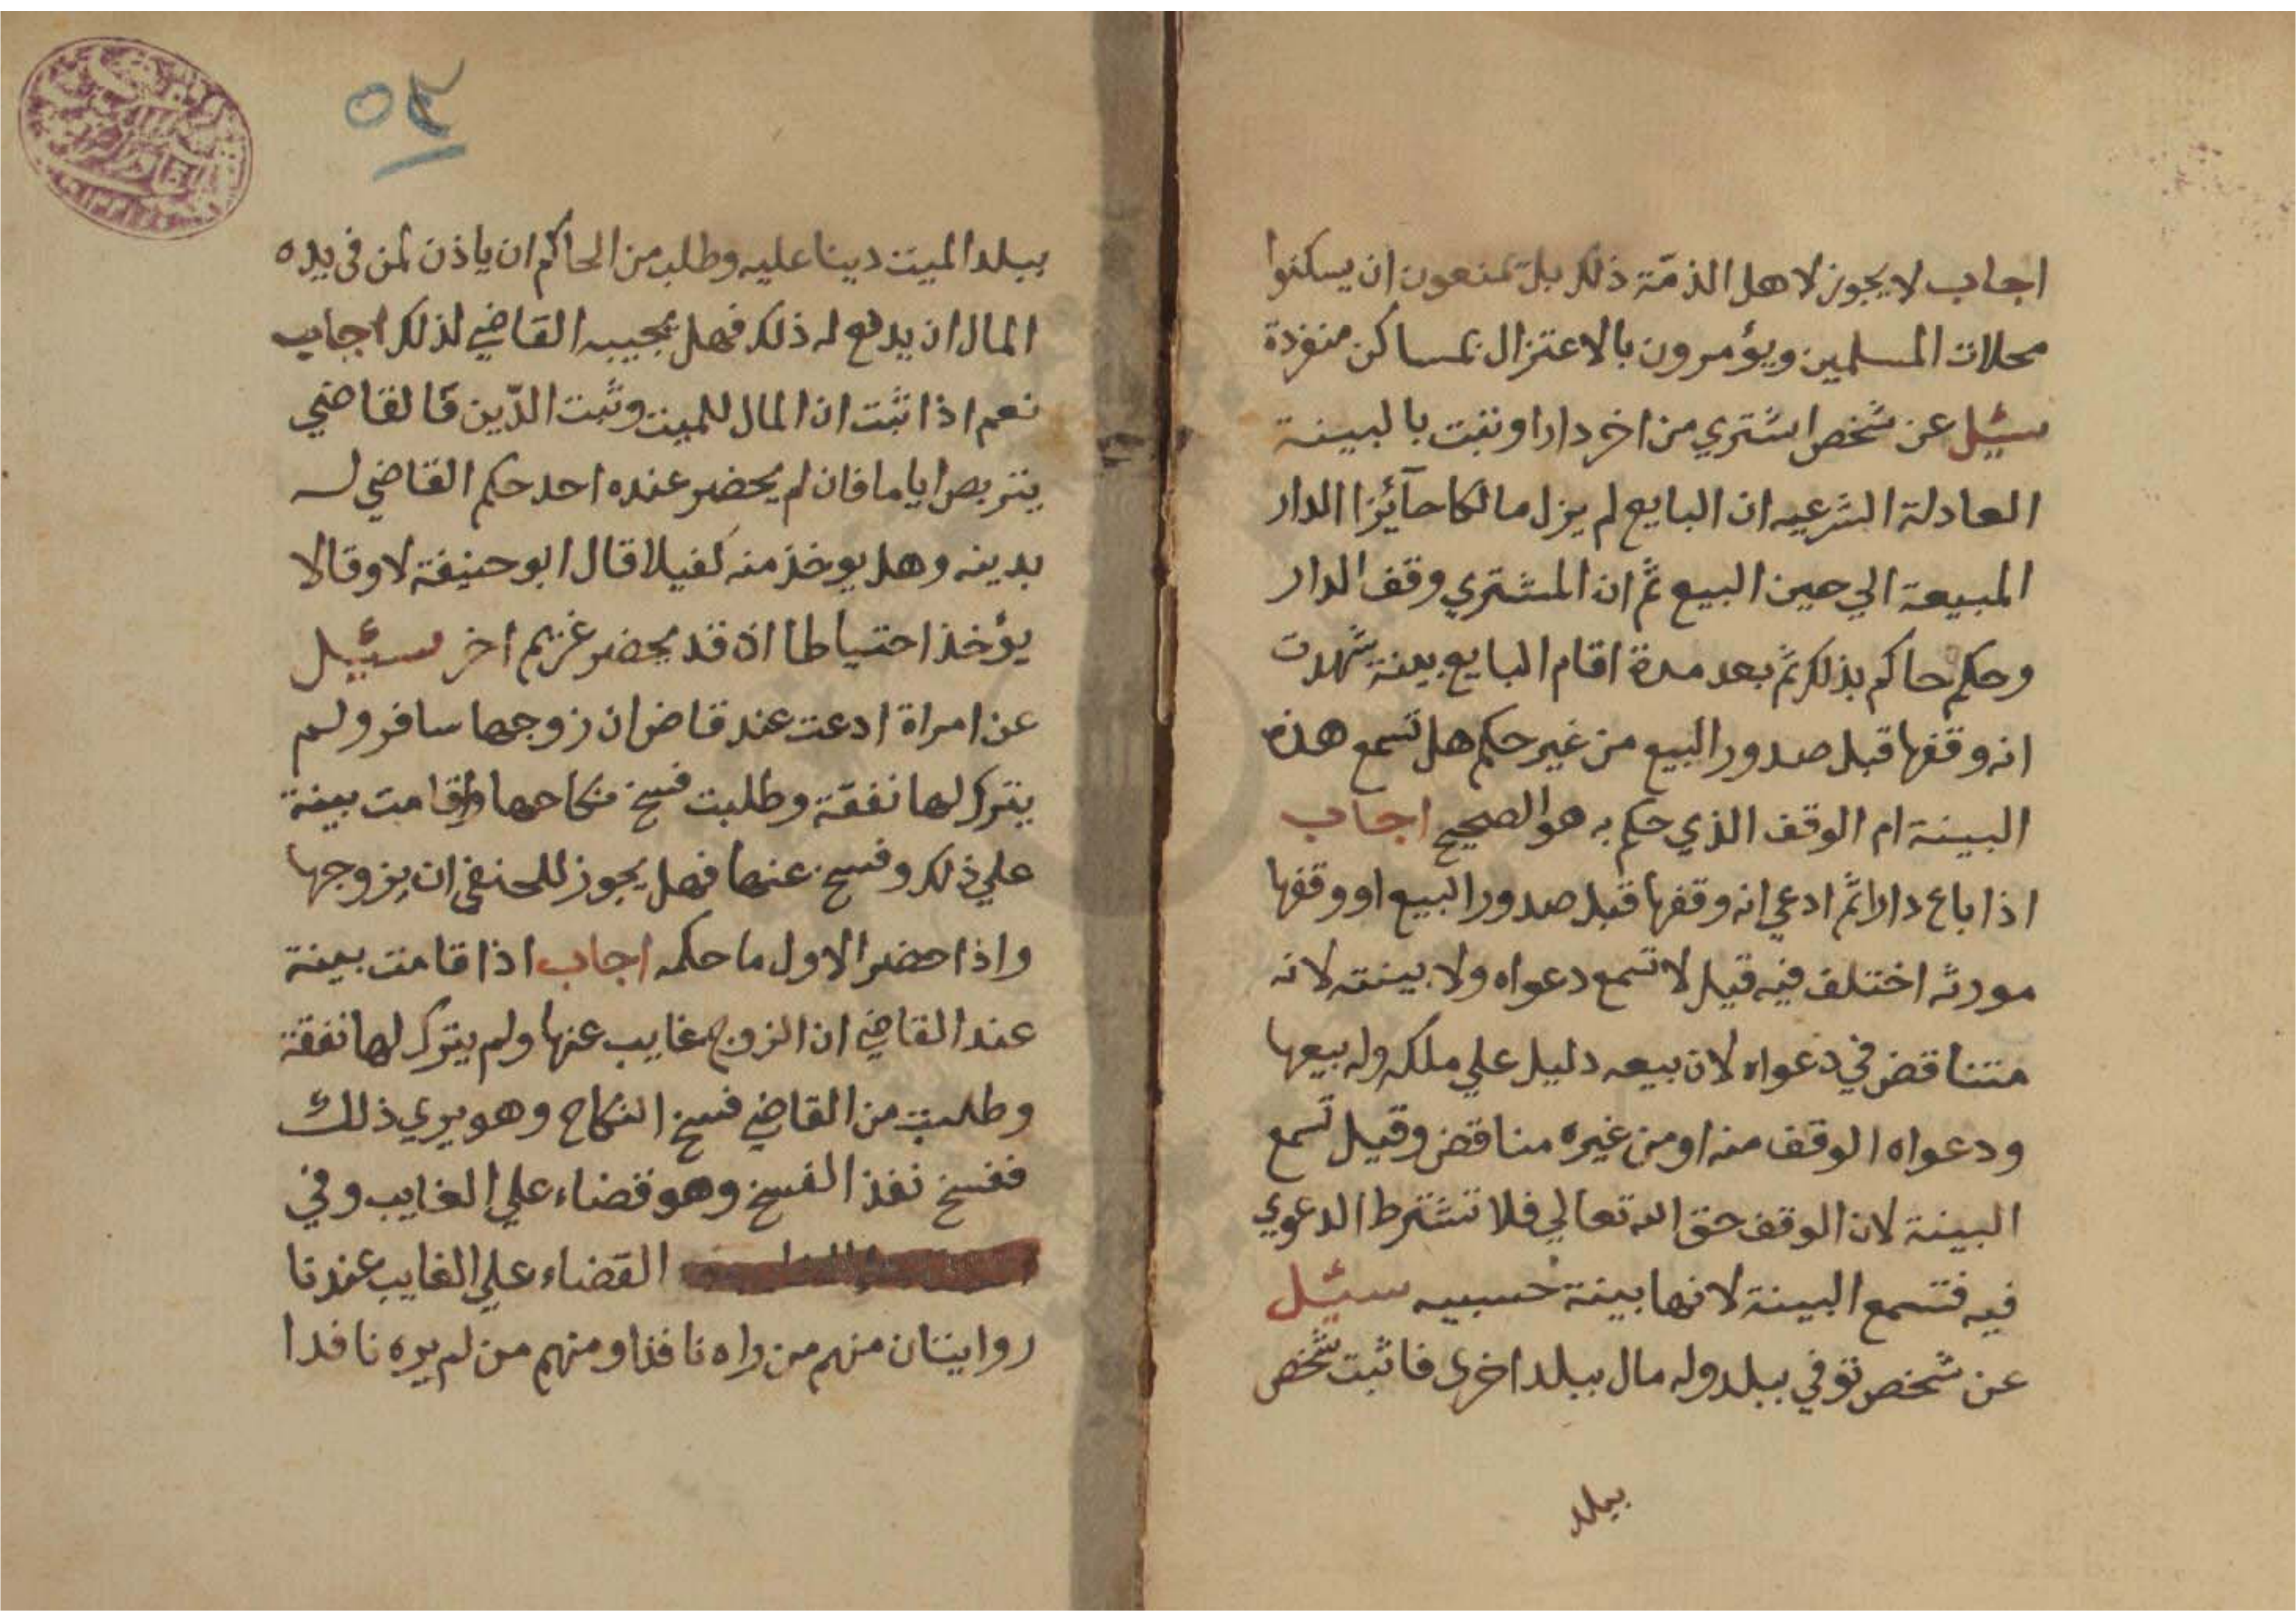 اجاب لا يجوز لاهل الذمّة ذلك بل يمنعون ان يسكنوا
محلات المسلمين ويؤمرون بالاعتزال بمساكن منفردة
سئيل عن شخص اشتري من اخر دارا وثبت بالبينة
العادلة الشرعيه ان البايع لم يزل مالكا حآئزا الدار
المبيعة الي حين البيع ثم ان المشتري وقف الدار
وحكم حاكم بذلك ثم بعد مدة اقام البايع بينة شهدت
انه وقفها قبل صدور البيع من غير حكم هل تسمع هذه
البينة ام الوقف الذي حكم به هو الصحيح اجاب
اذا باع دارا ثم ادعي انه وقفها قبل صدور البيع او وقفها
مورثه اختلف فيه قيل لا تسمع دعواه ولا بينته لانه
متناقض في دعواه لان بيعه دليل علي ملكه وله بيعها
ودعواه الوقف منه او من غيره مناقض وقيل تسمع
البينة لان الوقف حق الله تعالي فلا تشترط الدعوي
فيه فتسمع البينة لانها بينة حسبيه سئيل
عن شخص توفي ببلد وله مال ببلد اخرى فاثبت شخص
ببلد
٥٤
ببلد الميت دينا عليه وطلب من الحاكم ان ياذن لمن في يده
المال ان يدفع له ذلك فهل يجيبه القاضي لذلك اجاب
نعم اذا ثبت ان المال للميت وثبت الدّين فالقاضي
يتربص اياما فان لم يحضر عنده احد حكم القاضي له
بدينه وهل يوخذ منه كفيلا قال ابو حنيفة لا وقالا
يؤخذ احتياطا اذ قد يحضر غريم اخر سئيل
عن امراة ادعت عند قاض ان زوجها سافر ولم
يترك لها نفقة وطلبت فسخ نكاحها واقامت بينة
علي ذلك وفسخ عنها فهل يجوز للحنفي ان يزوجها
واذا حضر الاول ما حكمه اجاب اذا قامت بينة
عند القاضي ان الزوج غايب عنها ولم يترك لها نفقة
وطلبت من القاضي فسخ النكاح وهو يري ذلك
ففسخ نفذ الفسخ وهو قضاء علي الغايب وفي
القضاء علي الغايب عندنا
روايتان منهم من راه نافذا ومنهم من لم يره نافدا